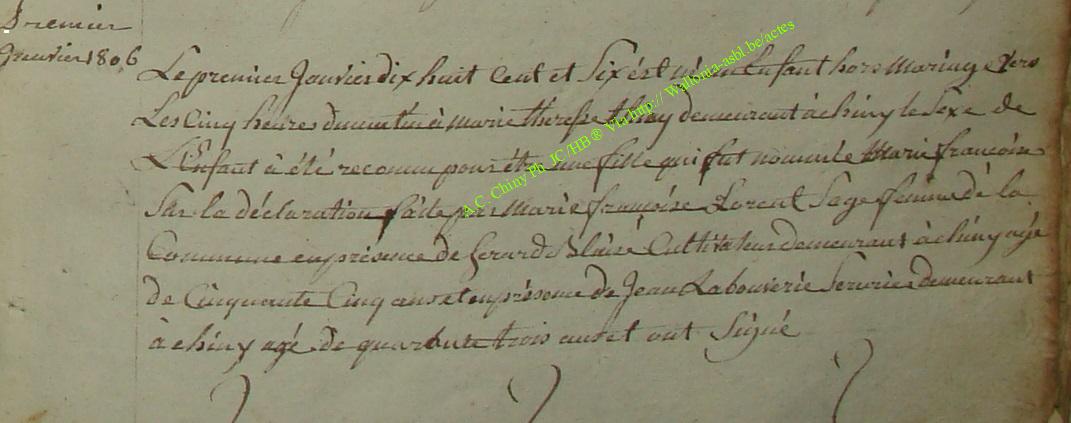 Premier
Janvier 1806
Le premier Janvier dix huit Cent et Six est né un Enfant hors Mariage Vers
Les Cinq heures du matin à Marie therese demeurant à chiny le Sexe de
L'Enfant à été reconnu pour être une fille qui fut nommée Marie françoise
Sur la déclaration faite par Marie françoise Lorent Sage femme dé la
Commune en présence de Gerard Blaise Cultivateur demeurant à chiny agé
de Cinquante Cinq ans et en présence de Jean Labouverie Serurier demeurant
à chiny agé de quarante trois ans et ont Signé
A.C. Chiny Ph. JC /HB® Via http:// Wallonia-asbl.be/actes